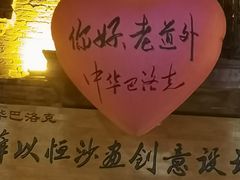 你好老道外
中华巴洛克
华巴洛克
以恒沙画创意设